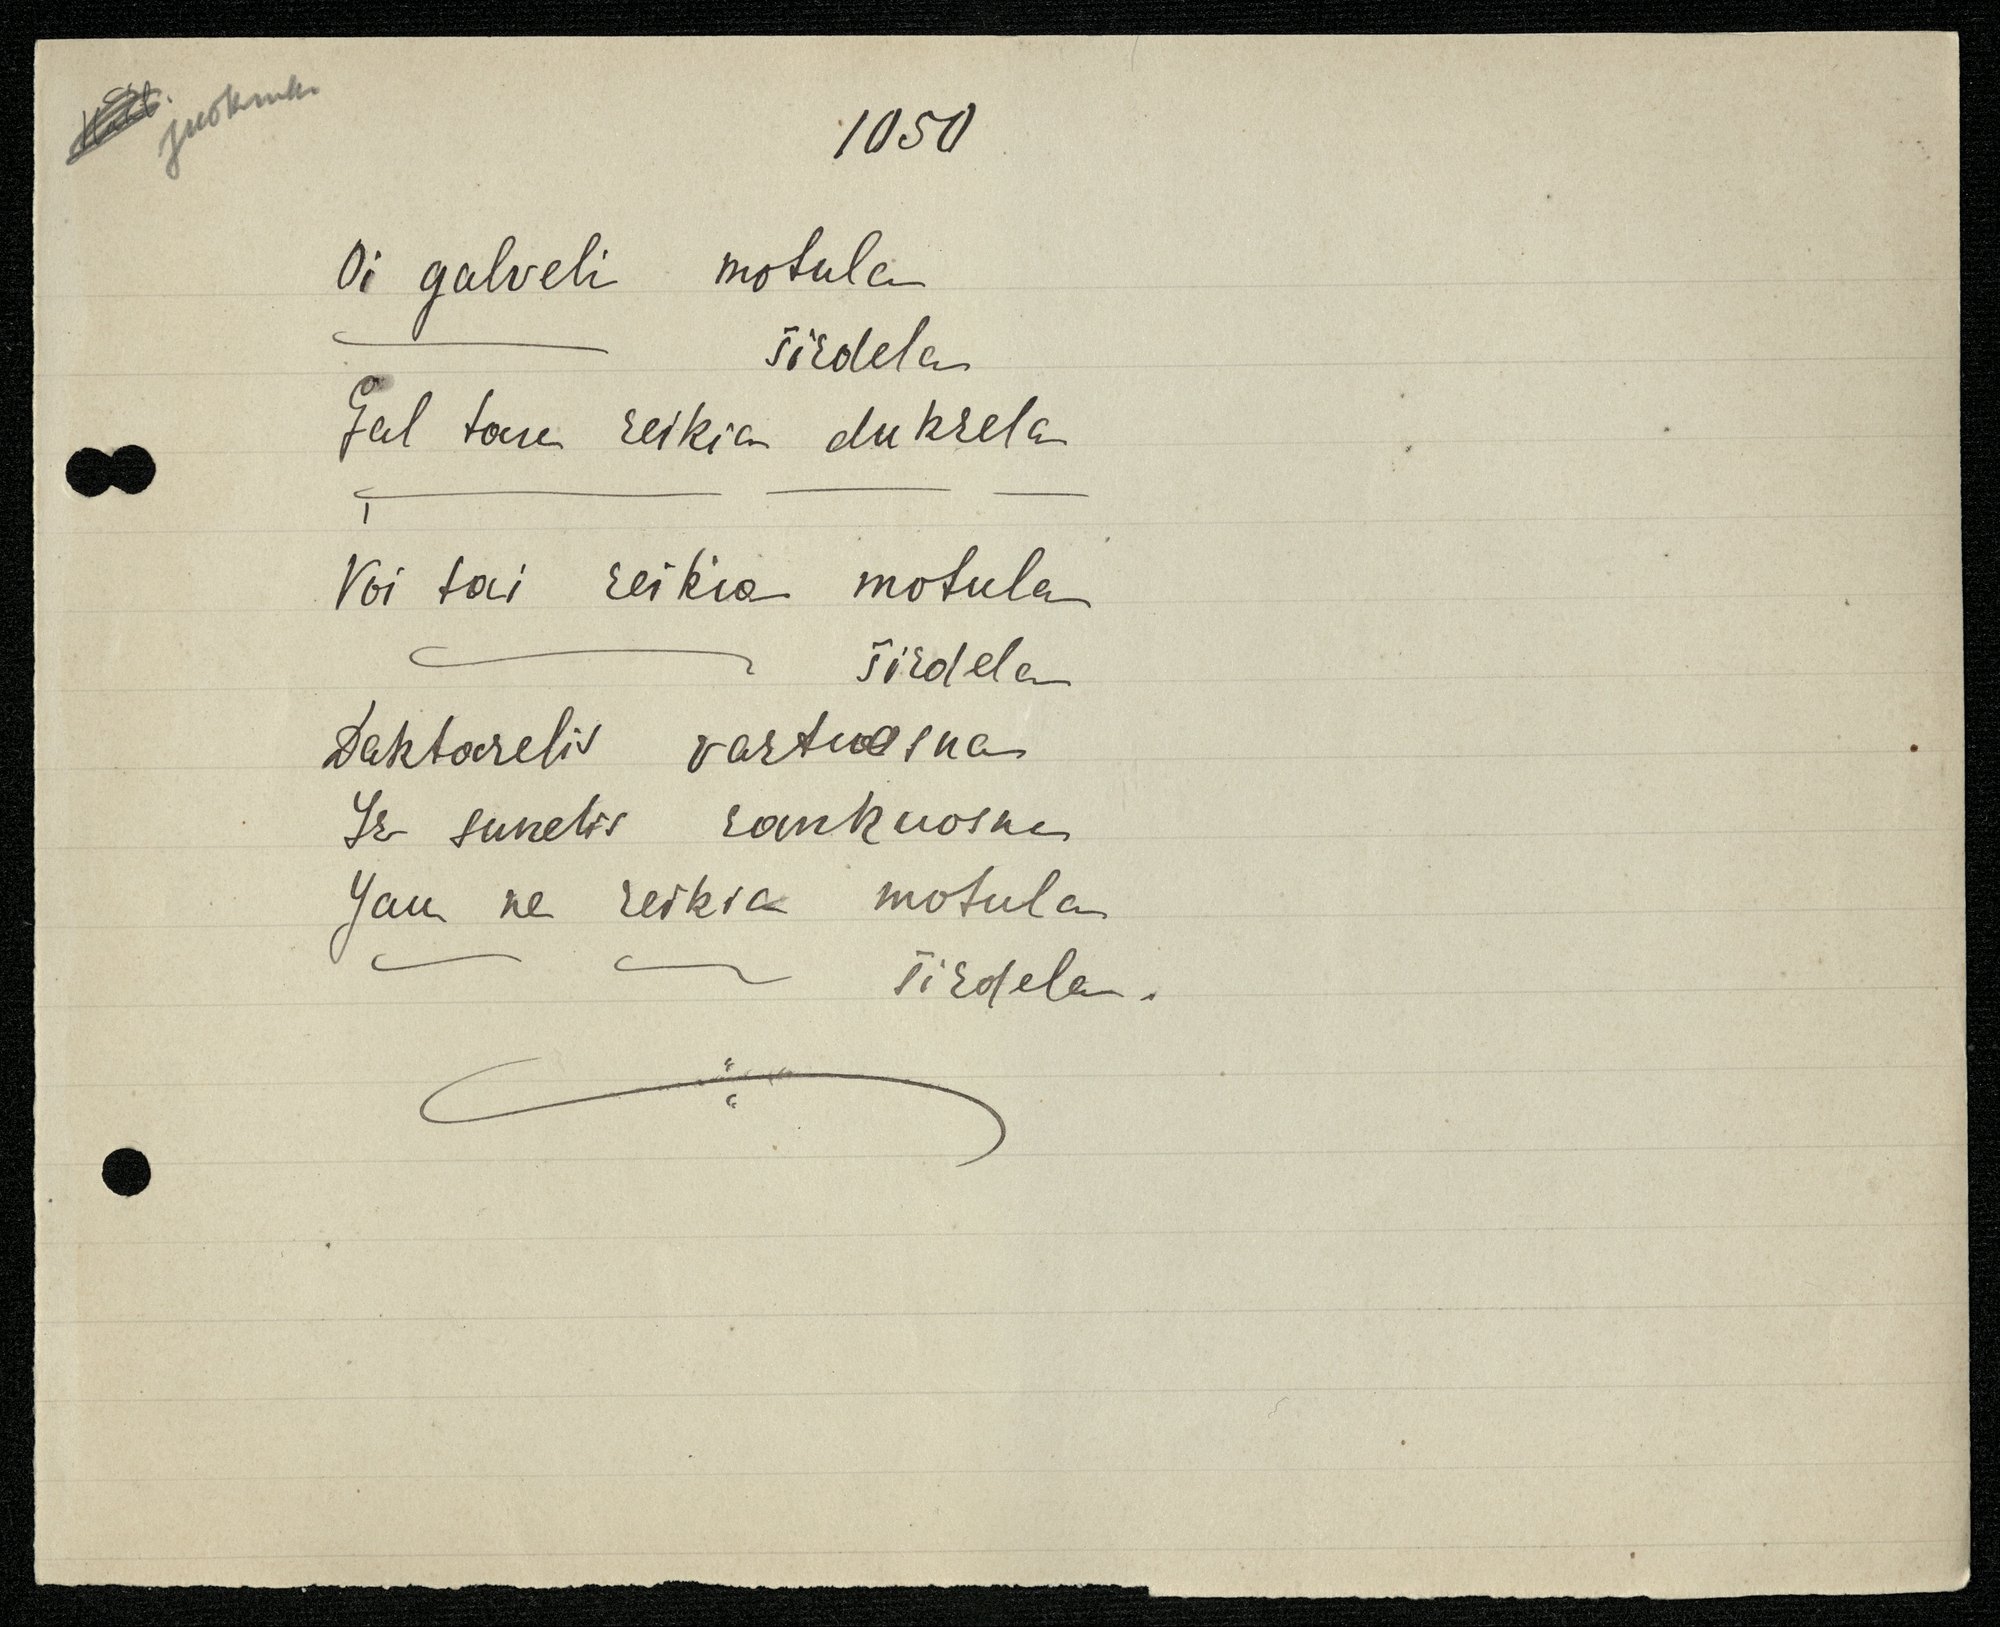 1050
Oi galveli motula
širdela
Gal tau reikia dukrela
Voi tai reikia motula
širdela
Daktarelis vartuosna
Ir sunelis rankuosna
Jau ne reikia motula
širdela.